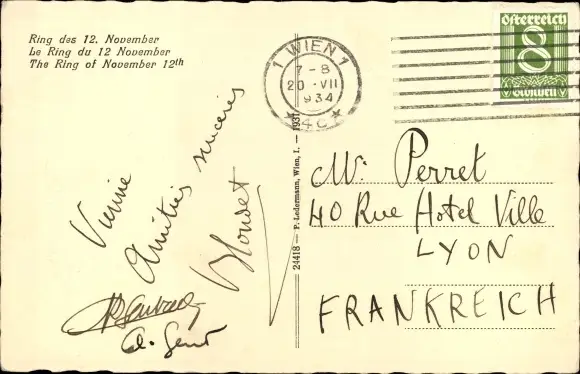 Ring des 12. November
Le Ring du 12 November
The Ring of November 12th
1 WIEN 1
7-8
20 · VII
934
* 4c *
Österreich
8
24418 — P. Ledermann, Wien, I. — 1931
Vienne
Amitiés sincères
Mr. Perret
40 Rue Hotel Ville
LYON
FRANKREICH